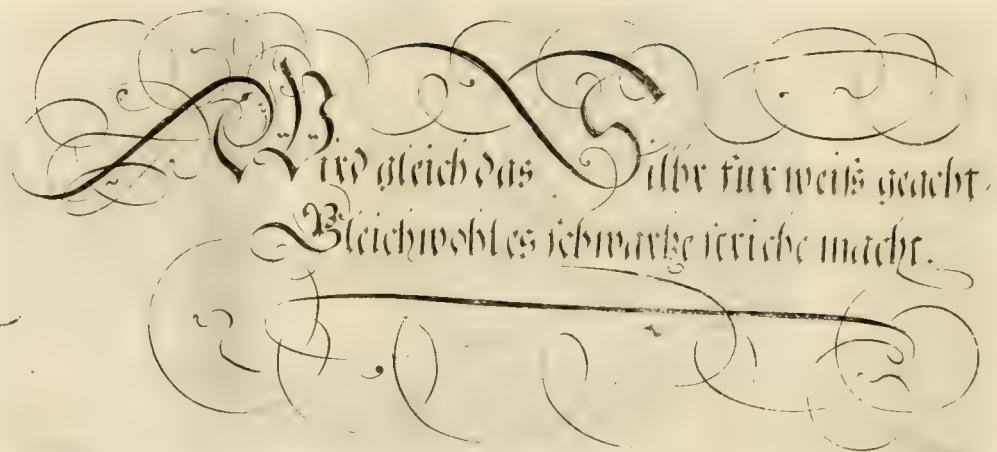 Wird gleich das Silbr für weiß geacht.
Gleichwohl es schwartze striche macht.